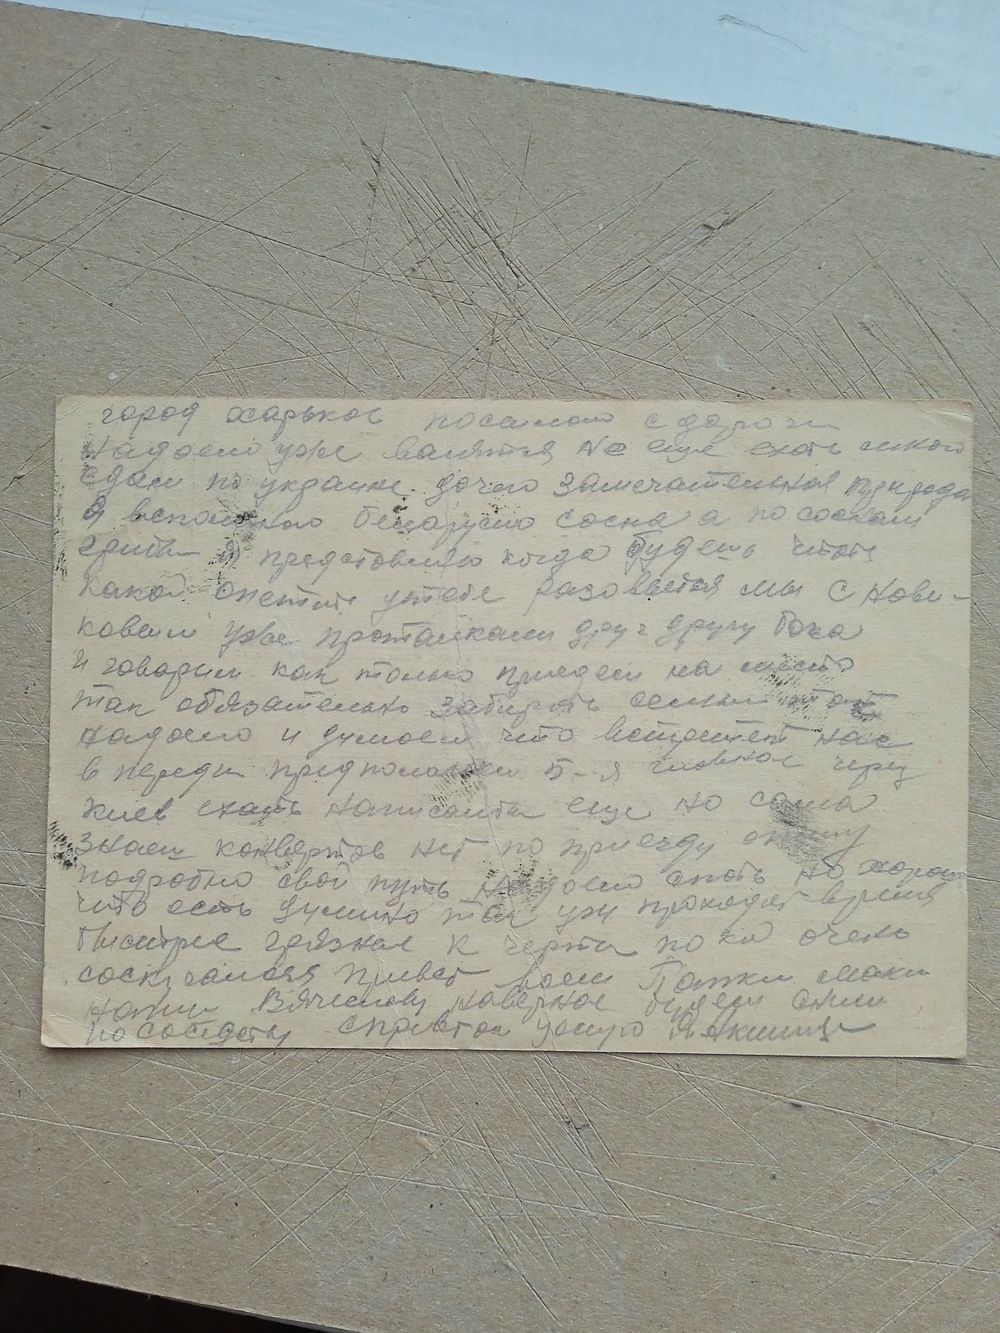 город харьков посылаю с дороги
надоело уже валятся но еще ехать
едем по украине очень замечательная природа
Я вспоминаю беларусию сосна а по соснам
грибы Я представляю когда будешь читать
какой апетит у тебя разовьется мы с Нови-
ковым уже протолкали друг другу бока
и говорим как только приедем на место
так обязательно забирать семьи
надоело и думаем что встретит нас
в переди предполагаем 5-я через
киев ехать написал бы еще но сама
знаеш конвертов нет по приезду опишу
подробно свой путь надоело спать но хорош
что есть так уж проходит время
быстрее к черту пока очень
соскучался привет всем мами
Вячеславу наверное будем
по соседству